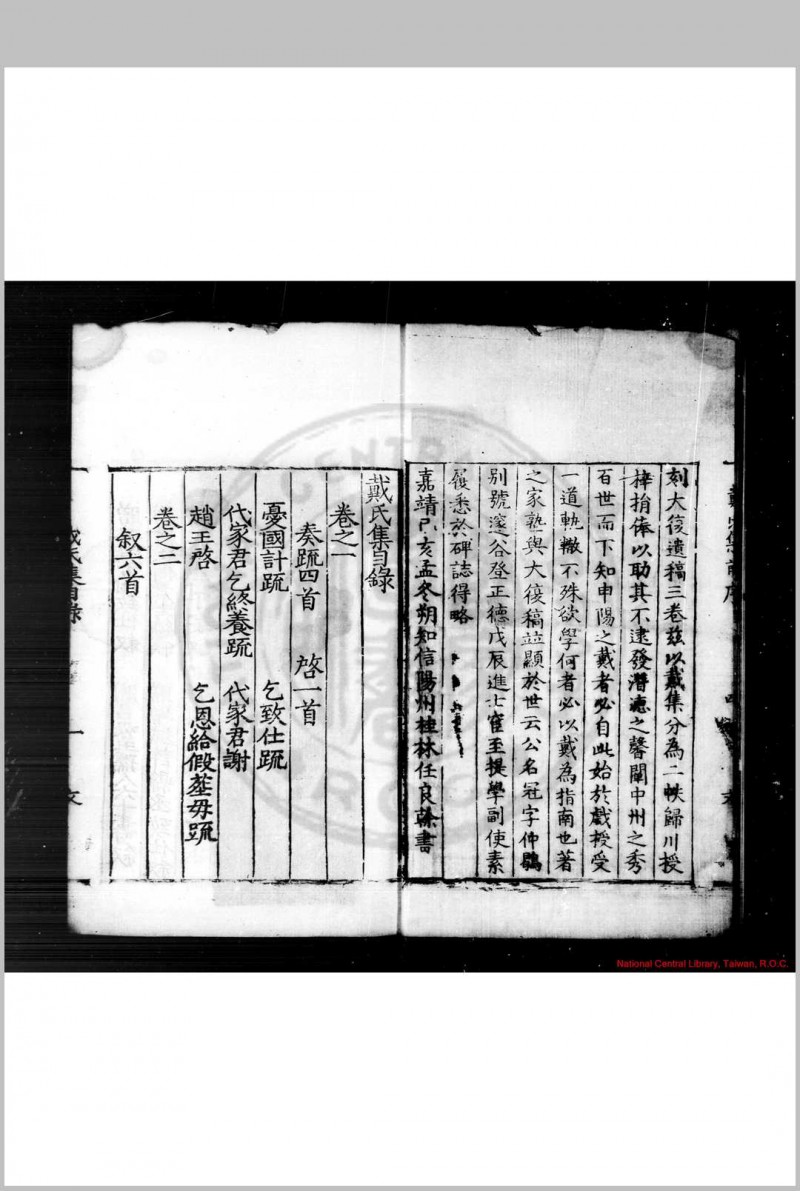 刻大復遺稿三卷茲以戴集分為二帙歸川授
梓捐俸以助其不逮發潛德之馨闡中州之秀
百世而下知申陽之戴者必自此始於戲授受
一道軌轍不殊欲學何者必以戴為指南也著
之家塾與大復稿竝顯於世云公名冠字仲鶡
別號邃谷登正德戊辰進士官至提學副使素
履悉於碑誌得略
嘉靖己亥孟冬朔知信陽州桂林任良榦書
戴氏集目錄
卷之一
奏疏四首 啓一首
憂國計疏 乞致仕疏
代家君乞終養疏 代家君謝
趙王啓 乞恩給假塟母疏
卷之二
叙六首
戴氏集目錄 一
National Central Library, Taiwan, R.O.C.